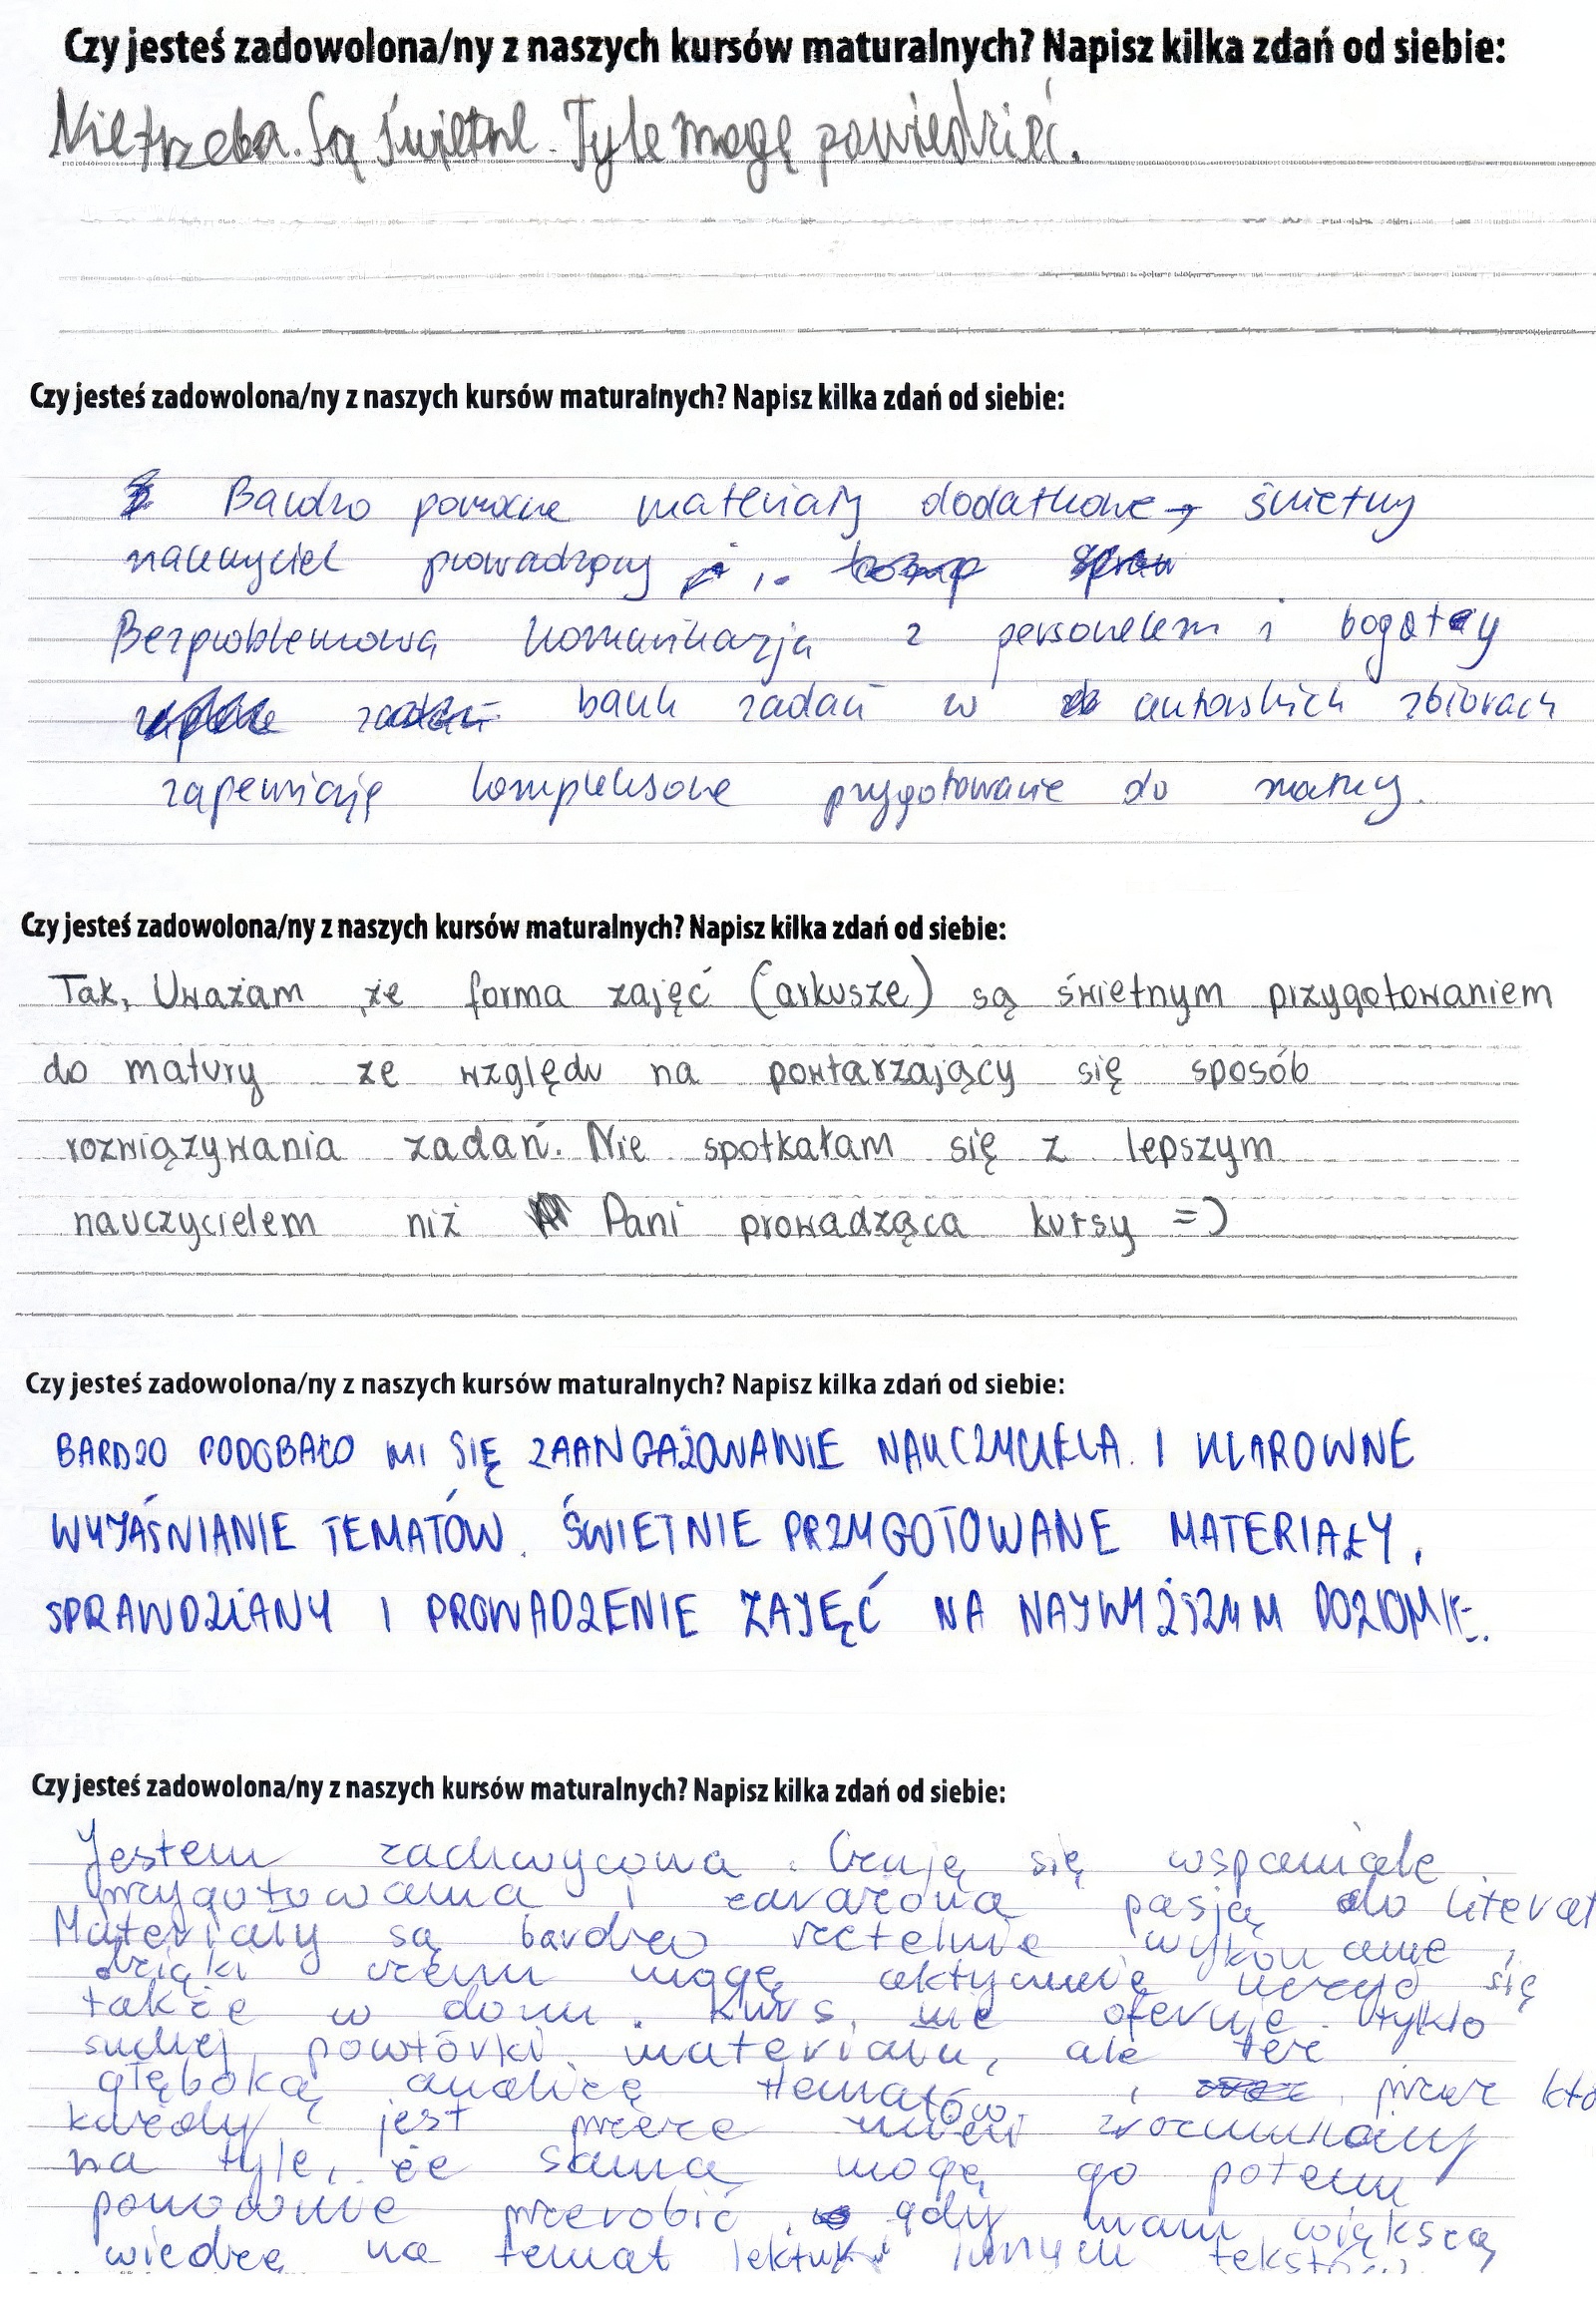 Czy jesteś zadowolona/ny z naszych kursów maturalnych? Napisz kilka zdań od siebie:
Nietrzeba. Są świetne. Tyle mogę powiedzieć.
Czy jesteś zadowolona/ny z naszych kursów maturalnych? Napisz kilka zdań od siebie:
Bardzo pomocne materiały dodatkowe, świetny
nauczyciel prowadzący
Bezproblemowa komunikacja z personelem i bogaty
bank zadań w autorskich zbiorach
zapewniają kompleksowe przygotowanie do matury.
Czy jesteś zadowolona/ny z naszych kursów maturalnych? Napisz kilka zdań od siebie:
Tak, Uważam że forma zajęć (arkusze) są świetnym przygotowaniem
do matury ze względu na powtarzający się sposób
rozwiązywania zadań. Nie spotkałam się z lepszym
nauczycielem niż Pani prowadząca kursy =)
Czy jesteś zadowolona/ny z naszych kursów maturalnych? Napisz kilka zdań od siebie:
BARDZO PODOBAŁO MI SIĘ ZAANGAŻOWANIE NAUCZYCIELA I KLAROWNE
WYJAŚNIANIE TEMATÓW. ŚWIETNIE PRZYGOTOWANE MATERIAŁY,
SPRAWDZIANY I PROWADZENIE ZAJĘĆ NA NAJWYŻSZYM POZIOMIE.
Czy jesteś zadowolona/ny z naszych kursów maturalnych? Napisz kilka zdań od siebie:
Jestem zachwycona. Czuję się wspaniale
przygotowana i zarażona pasją do literat
Materiały są bardzo rzetelnie wykonane,
dzięki czemu mogę aktywnie uczyć się
także w domu. Kurs nie oferuje tylko
suchej powtórki materiału, ale też
głęboką analizę tematów, przez któ
każdy jest przeze mnie zrozumiany
na tyle, że sama mogę go potem
ponownie przerobić gdy mam większą
wiedzę na temat lektur i innych tekstów